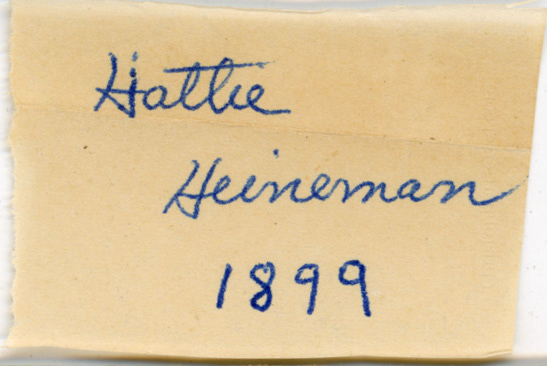 Hattie
Heineman
1899